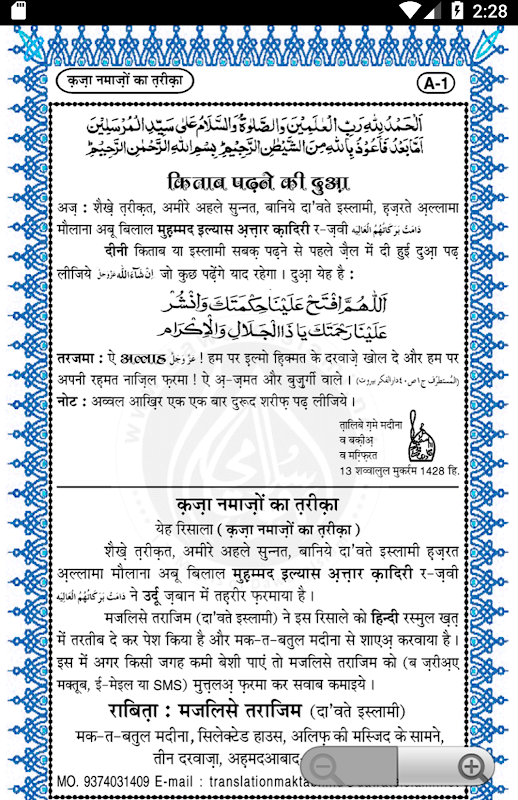 2:28
क़ज़ा नमाज़ों का त़रीक़ा
A-1
اَلْحَمْدُ لِلّٰهِ رَبِّ الْعٰلَمِيْنَ وَالصَّلٰوةُ وَالسَّلَامُ عَلٰى سَيِّدِ الْمُرْسَلِيْنَ
اَمَّا بَعْدُ فَاَعُوْذُ بِاللّٰهِ مِنَ الشَّيْطٰنِ الرَّجِيْمِ ط بِسْمِ اللّٰهِ الرَّحْمٰنِ الرَّحِيْمِ ط
किताब पढ़ने की दुआ़
अज़ : शैख़े त़रीक़त, अमीरे अहले सुन्नत, बानिये दा'वते इस्लामी, ह़ज़रते अ़ल्लामा
मौलाना अबू बिलाल मुह़म्मद इल्यास अ़त्तार क़ादिरी र-ज़वी دَامَتْ بَرَكَاتُهُمُ الْعَالِيَه
दीनी किताब या इस्लामी सबक़ पढ़ने से पहले ज़ैल में दी हुई दुआ़ पढ़
लीजिये اِنْ شَآءَ اللّٰه عَزَّوَجَلَّ जो कुछ पढ़ेंगे याद रहेगा । दुआ़ येह है :
اَللّٰهُمَّ افْتَحْ عَلَيْنَا حِكْمَتَكَ وَانْشُرْ
عَلَيْنَا رَحْمَتَكَ يَا ذَا الْجَلَالِ وَالْاِكْرَام
तरजमा : ऐ अल्लाह عَزَّوَجَلَّ ! हम पर इ़ल्मो हिक्मत के दरवाज़े खोल दे और हम पर
अपनी रहमत नाज़िल फ़रमा ! ऐ अ़-ज़मत और बुज़ुर्गी वाले । (اَلْمُسْتَطْرَف ج١ ص٤٠ دارالفكر بيروت)
नोट : अव्वल आख़िर एक एक बार दुरूद शरीफ़ पढ़ लीजिये ।
त़ालिबे ग़मे मदीना
व बक़ीअ़
व मग़्फ़िरत
13 शव्वालुल मुकर्रम 1428 हि.
क़ज़ा नमाज़ों का त़रीक़ा
येह रिसाला ( क़ज़ा नमाज़ों का त़रीक़ा )
शैख़े त़रीक़त, अमीरे अहले सुन्नत, बानिये दा'वते इस्लामी ह़ज़रत
अ़ल्लामा मौलाना अबू बिलाल मुह़म्मद इल्यास अ़त्तार क़ादिरी र-ज़वी
دَامَتْ بَرَكَاتُهُمُ الْعَالِيَه ने उर्दू ज़बान में तह़रीर फ़रमाया है ।
मजलिसे तराजिम (दा'वते इस्लामी) ने इस रिसाले को हिन्दी रस्मुल ख़त़
में तरतीब दे कर पेश किया है और मक-त-बतुल मदीना से शाएअ़ करवाया है ।
इस में अगर किसी जगह कमी बेशी पाएं तो मजलिसे तराजिम को (ब ज़रीअ़ए
मक्तूब, ई-मेइल या SMS) मुत़्त़लअ़ फ़रमा कर सवाब कमाइये ।
राबित़ा : मजलिसे तराजिम (दा'वते इस्लामी)
मक-त-बतुल मदीना, सिलेक्टेड हाउस, अलिफ़ की मस्जिद के सामने,
तीन दरवाज़ा, अह़मदआबाद
MO. 9374031409 E-mail :